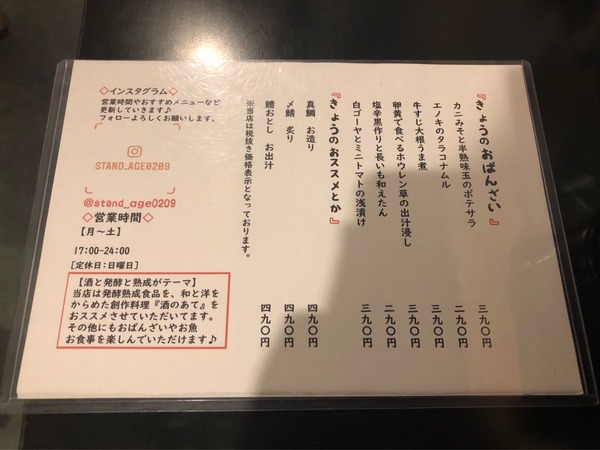 『きょうのおばんざい』
カニみそと半熟味玉のポテサラ 三九〇円
エノキのタラコナムル 二九〇円
牛すじ大根うま煮 三九〇円
卵黄で食べるホウレン草の出汁浸し 二九〇円
塩辛黒作りと長いも和えたん 三九〇円
白ゴーヤとミニトマトの浅漬け 三九〇円
『きょうのおススメとか』
真鯛 お造り 四九〇円
〆鯖 炙り 四九〇円
鱧おとし お出汁 四九〇円
※当店は税抜き価格表示となっております。
◇インスタグラム◇
営業時間やおすすめメニューなど
更新していきます♪
フォローよろしくお願いします。
STAND_AGE0209
@stand_age0209
◇営業時間◇
【月〜土】
17:00-24:00
[定休日:日曜日]
【酒と発酵と熟成がテーマ】
当店は発酵熟成食品を、和と洋を
からめた創作料理『酒のあて』を
おススメさせていただいてます。
その他にもおばんざいやお魚
お食事を楽しんでいただけます♪